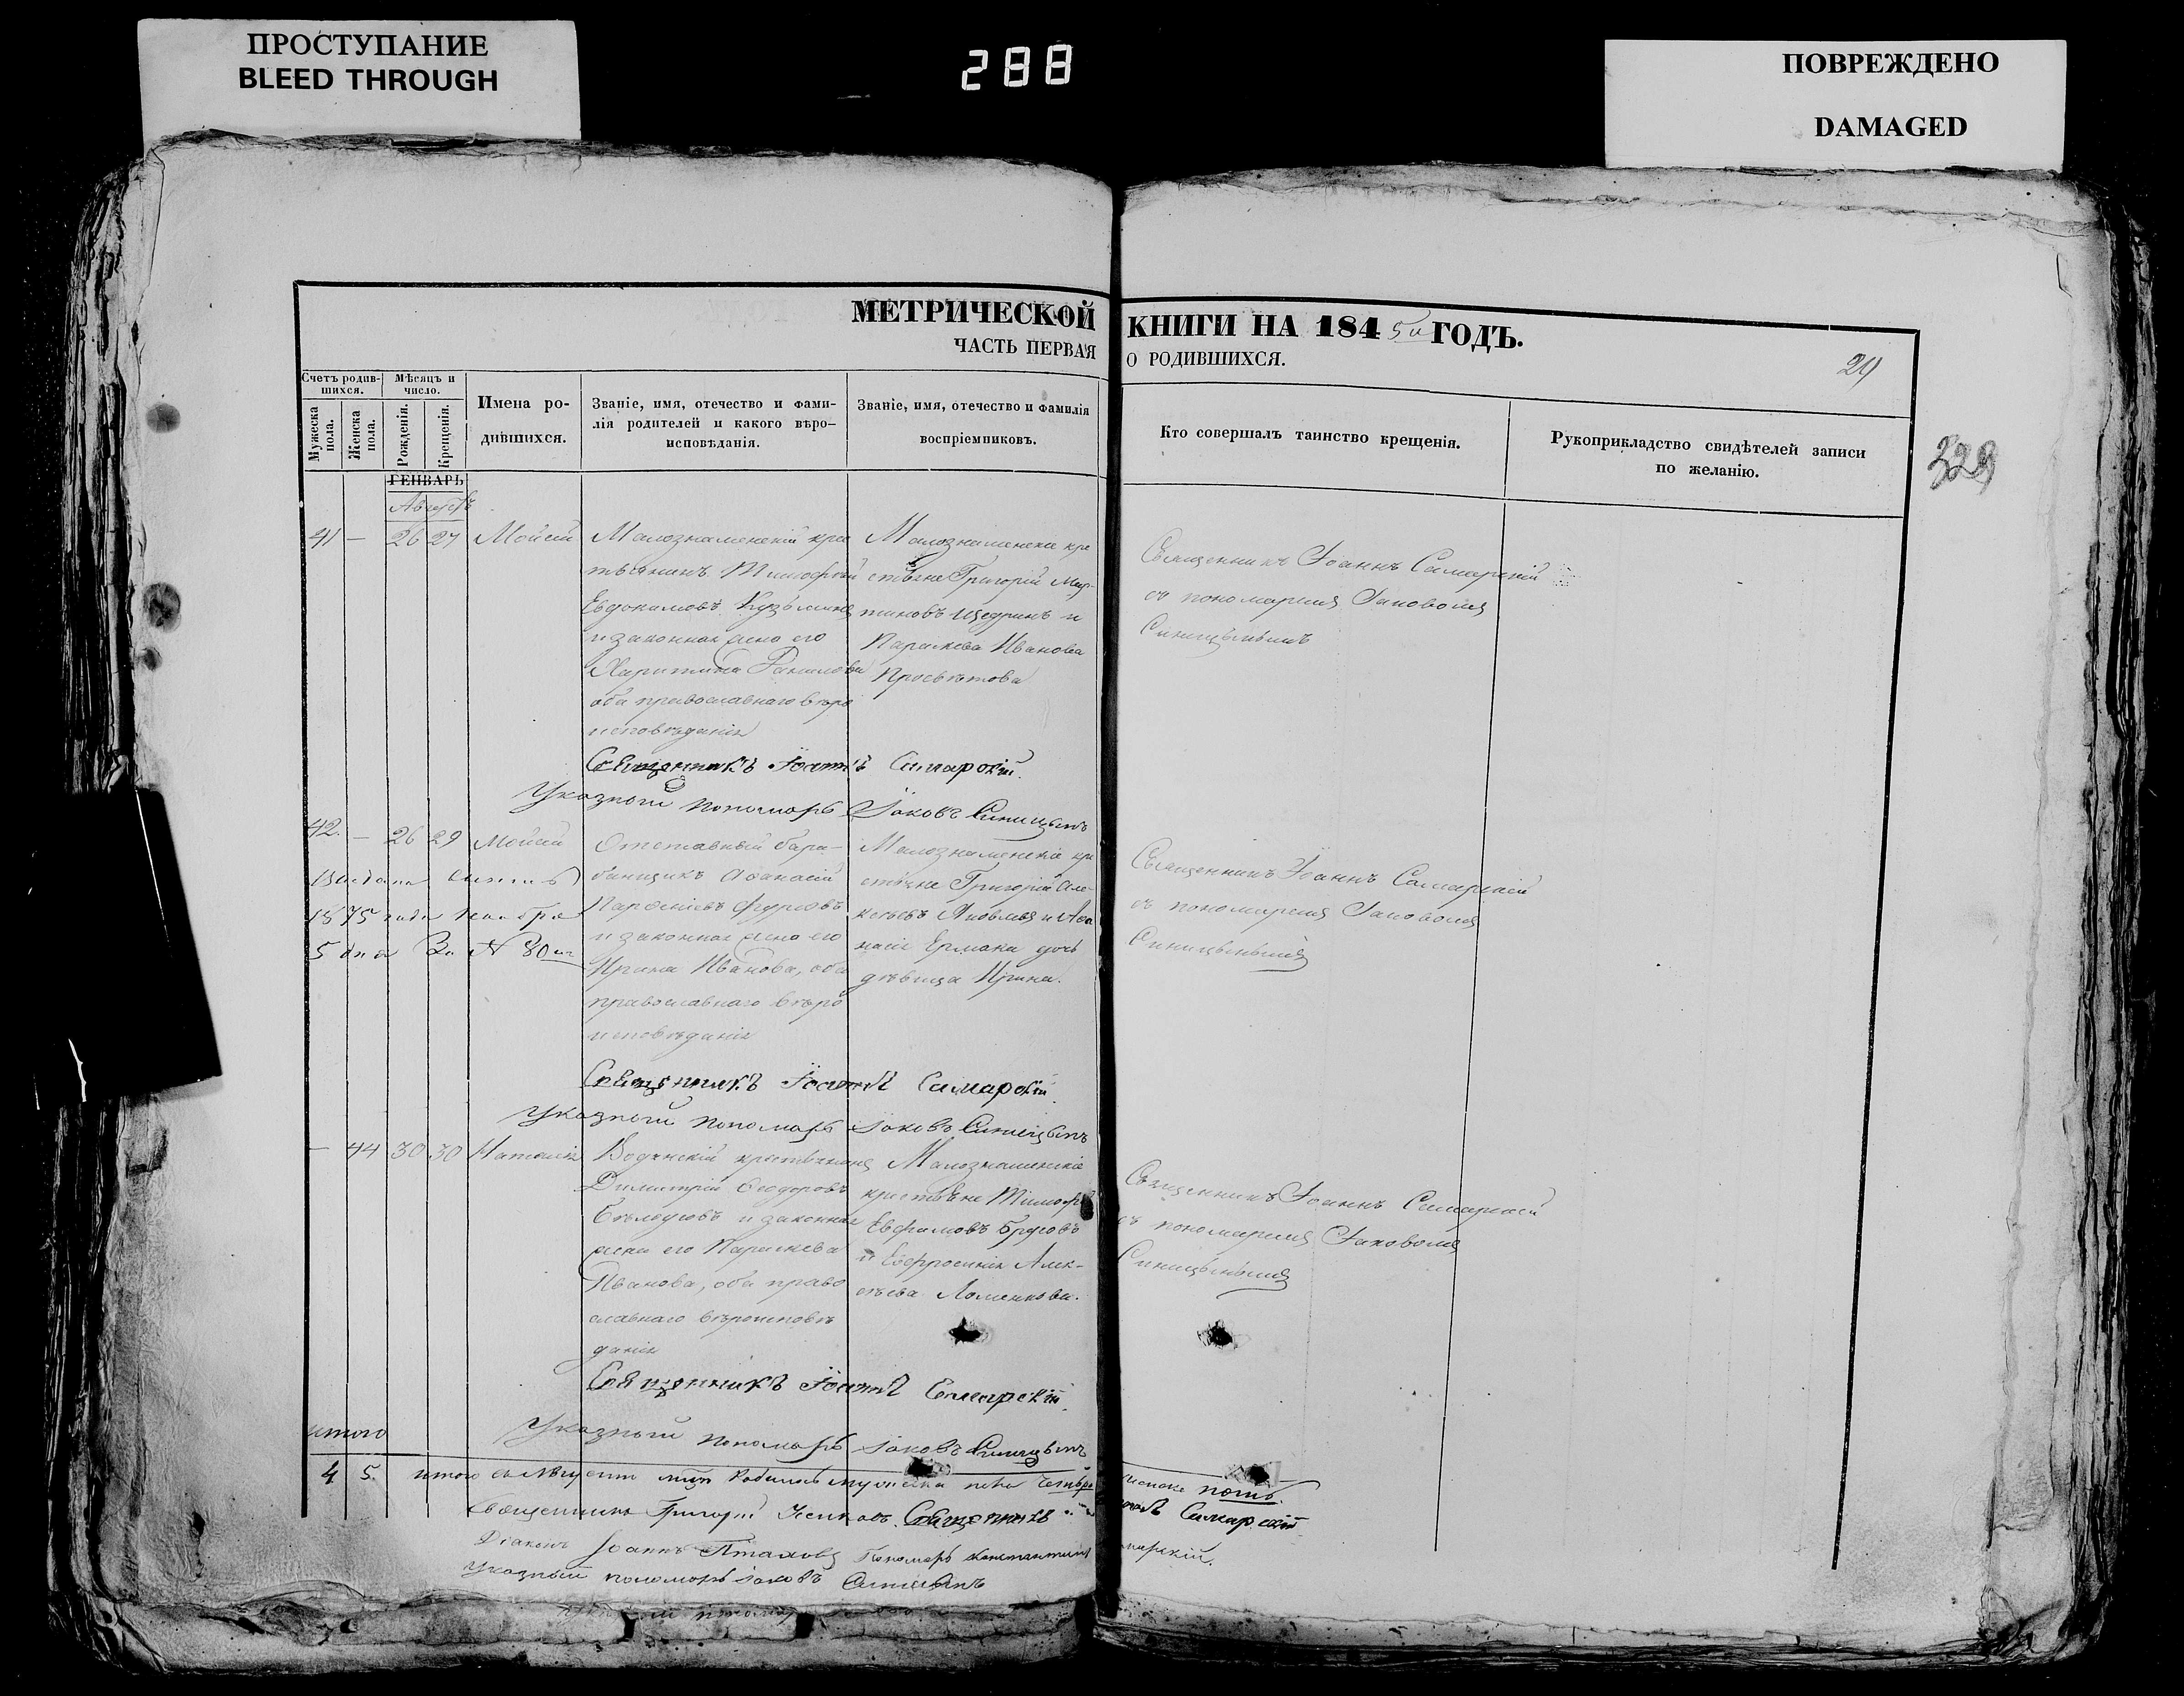 ПРОСТУПАНИЕ
BLEED THROUGH
288
ПОВРЕЖДЕНО
DAMAGED
МЕТРИЧЕСКОЙ КНИГИ НА 1845й ГОДЪ.
ЧАСТЬ ПЕРВАЯ О РОДИВШИХСЯ.
29
329
Счетъ родив-
шихся.
Мѣсяцъ и
число.
Мужеска
пола.
Женска
пола.
Рожденія.
Крещенія.
Имена ро-
дившихся.
Званіе, имя, отечество и фами-
лія родителей и какого вѣро-
исповѣданія.
Званіе, имя, отечество и фамилія
воспріемниковъ.
Кто совершалъ таинство крещенія.
Рукоприкладство свидѣтелей записи
по желанію.
ГЕНВАРЬ
Августъ
41 — 26 27 Мойсей
Малознаменскій кре
стьянинъ Тимофей
Евдокимовъ
и законная жена его
оба православнаго вѣро
исповѣданія
Малознаменскіе кре
стьяне Григорій Мар-
тиновъ Щедринъ и
Параскева Иванова
Просвѣтова
Священникъ Іоаннъ Самарскій
съ пономаремъ Іаковомъ
Синицынымъ
Священникъ Іоаннъ Самарскій.
Указный пономарь Іаковъ Синицынъ
42. — 26 29 Мойсей
1875 года Ноября
5 дня За № 80
Отставный бара-
банщикъ Афанасій
и законная жена его
Ирина Иванова, оба
православнаго вѣро
исповѣданія
Малознаменскіе кре
стьяне Григорій Але-
ксѣевъ Яковлевъ и Афа
насія Ермака дочь
дѣвица Ирина.
Священникъ Іоаннъ Самарскій
съ пономаремъ Іаковомъ
Синицынымъ
Священникъ Іоаннъ Самарскій.
Указный пономарь Іаковъ Синицынъ
— 44 30 30 Наталія
Водянскій крестьянинъ
Димитрій Феодоровъ
и законная
жена его Параскева
Иванова, оба право
славнаго вѣроисповѣ
данія
Малознаменскіе
крестьяне Тимофей
Евфимовъ
и Евфросинія Алек-
сѣева
Священникъ Іоаннъ Самарскій
съ пономаремъ Іаковомъ
Синицынымъ
Священникъ Іоаннъ Самарскій.
Указный пономарь Іаковъ Синицынъ
итого
4 5. итого въ Августѣ родилось мужеска пола четыре женска пять.
Священникъ Григорій Священникъ Іоаннъ Самарскій
Діаконъ Іоаннъ Пономарь Константинъ Самарскій.
Указный пономарь Іаковъ Синицынъ